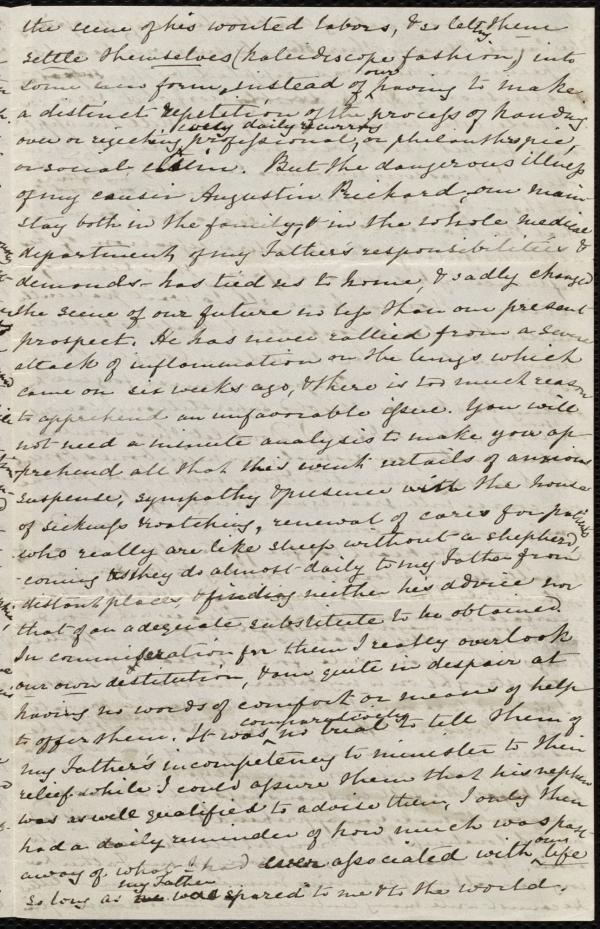 the scene of his wonted labors, & so letting them
settle themselves (kaleidoscope fashion,) into
some new form, instead of our having to make
a distinct repetition of the process of handing
over or rejecting every daily recurring professional, or philanthropic,
or social claim. But the dangerous illness
of my cousin Augustin Prichard, our main
stay both in the family, & in the whole medical
department, of my Father's responsibilities &
demands - has tied us to home, & sadly changed
the scene of our future no less than our present
prospect. He has never rallied from a severe
attack of inflammation on the lungs which
came on six weeks ago, & there is too much reason
to apprehend an unfavorable issue. You will
not need a minute analysis to make you ap-
prehend all that this event entails of anxious
suspense, sympathy & presence with the house
of sickness & watching, renewal of cares for patients
who really are like sheep without a shepherd,
coming as they do almost daily to my Father from
distant places, & finding neither his advice nor
that of an adequate substitute to be obtained.
In commiseration for them I really overlook
our own destitution, & am quite in despair at
having no words of comfort or means of help
to offer them. It was comparatively no trial to tell them of
my Father's incompetency to minister to their
relief while I could assure them that his nephew
was as well qualified to advise them, I only then
had a daily reminder of how much was past
away of what I had ever associated with our life
so long as my Father was spared to me & to the world.